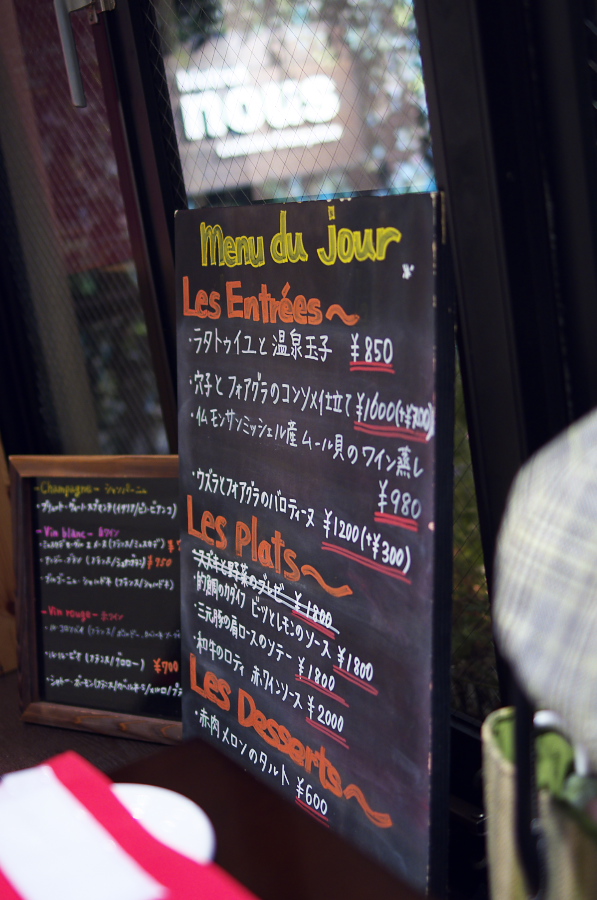 nous
Menu du jour
Les Entrées～
・ラタトゥイユと温泉玉子 ¥850
・穴子とフォアグラのコンソメ仕立て ¥1600(+¥300)
・仏モンサンミッシェル産ムール貝のワイン蒸し
¥980
・ウズラとフォアグラのバロティーヌ ¥1200(+¥300)
Les Plats～
・スズキと野菜のブレゼ ¥1800
・的鯛のカダイフ ビーツとレモンのソース ¥1800
・三元豚の肩ロースのソテー ¥1800
・和牛のロティ 赤ワインソース ¥2000
Les Desserts～
・赤肉メロンのタルト ¥600
Champagne- シャンパーニュ
Vin blanc- 白ワイン
¥750
Vin rouge- 赤ワイン
¥700